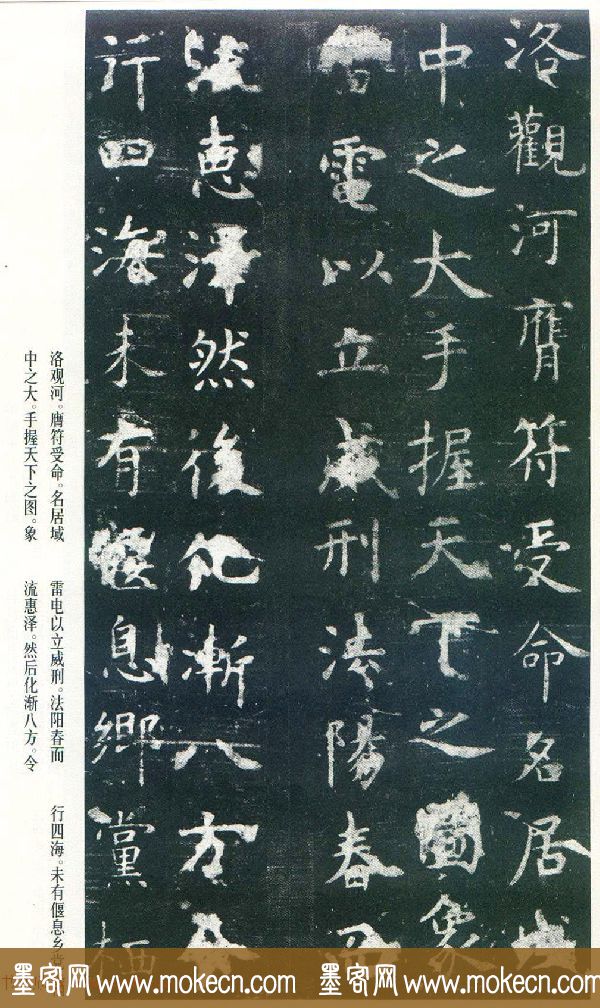 洛觀河膺符受命名居域
中之大手握天下之圖象
雷電以立威刑法陽春而
流恵澤然後化漸八方令
行四海未有偃息鄉黨栖
洛观河。膺符受命。名居域
中之大。手握天下之图。象
雷电以立威刑。法阳春而
流惠泽。然后化渐八方。令
行四海。未有偃息乡党
墨客网 www.mokecn.com 墨客网 www.mokecn.com